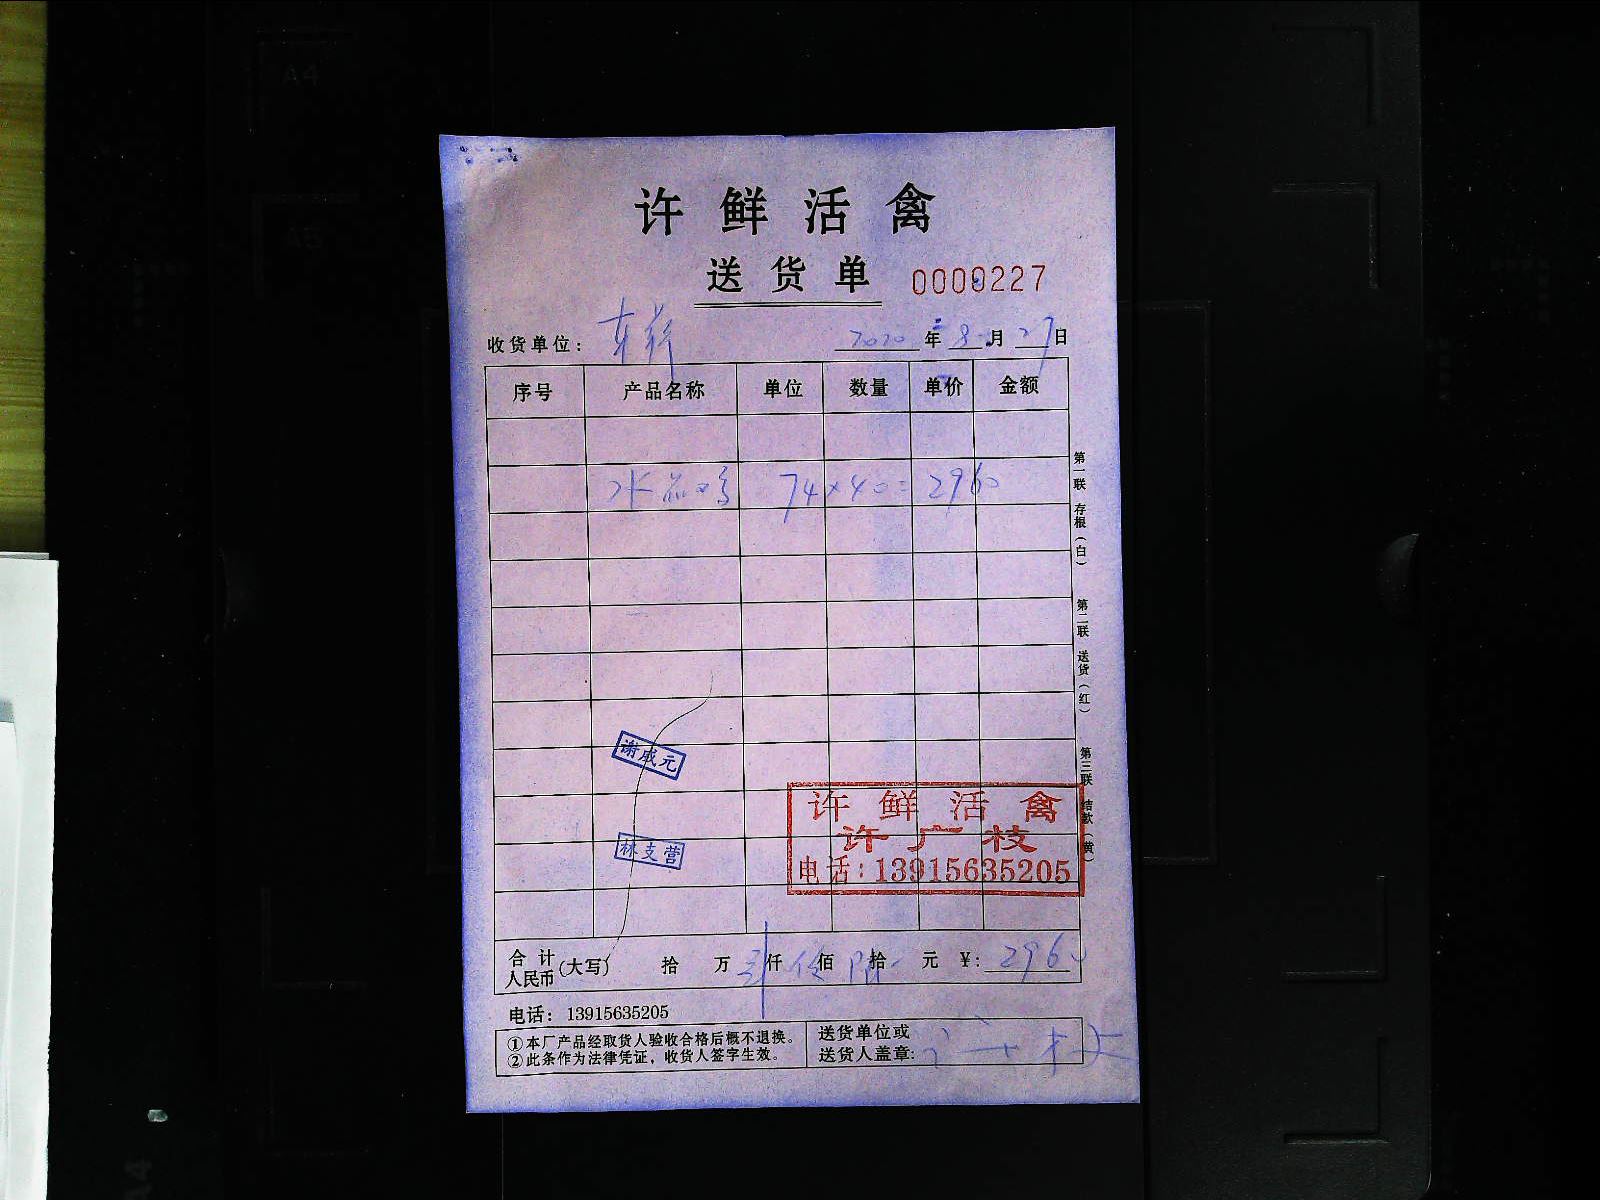 许鲜活禽
送货单 0000227
收货单位： 2020年8月27日
序号 产品名称 单位 数量 单价 金额
74×40=2960
谢成元
林支营
许鲜活禽
许广枝
电话：13915635205
合计人民币(大写) 拾 万 仟 佰 拾 元 ¥：2960
电话：13915635205
①本厂产品经取货人验收合格后概不退换。
②此条作为法律凭证，收货人签字生效。
送货单位或
送货人盖章：
第一联 存根（白）
第二联 送货（红）
第三联 结款（黄）
A4
A5